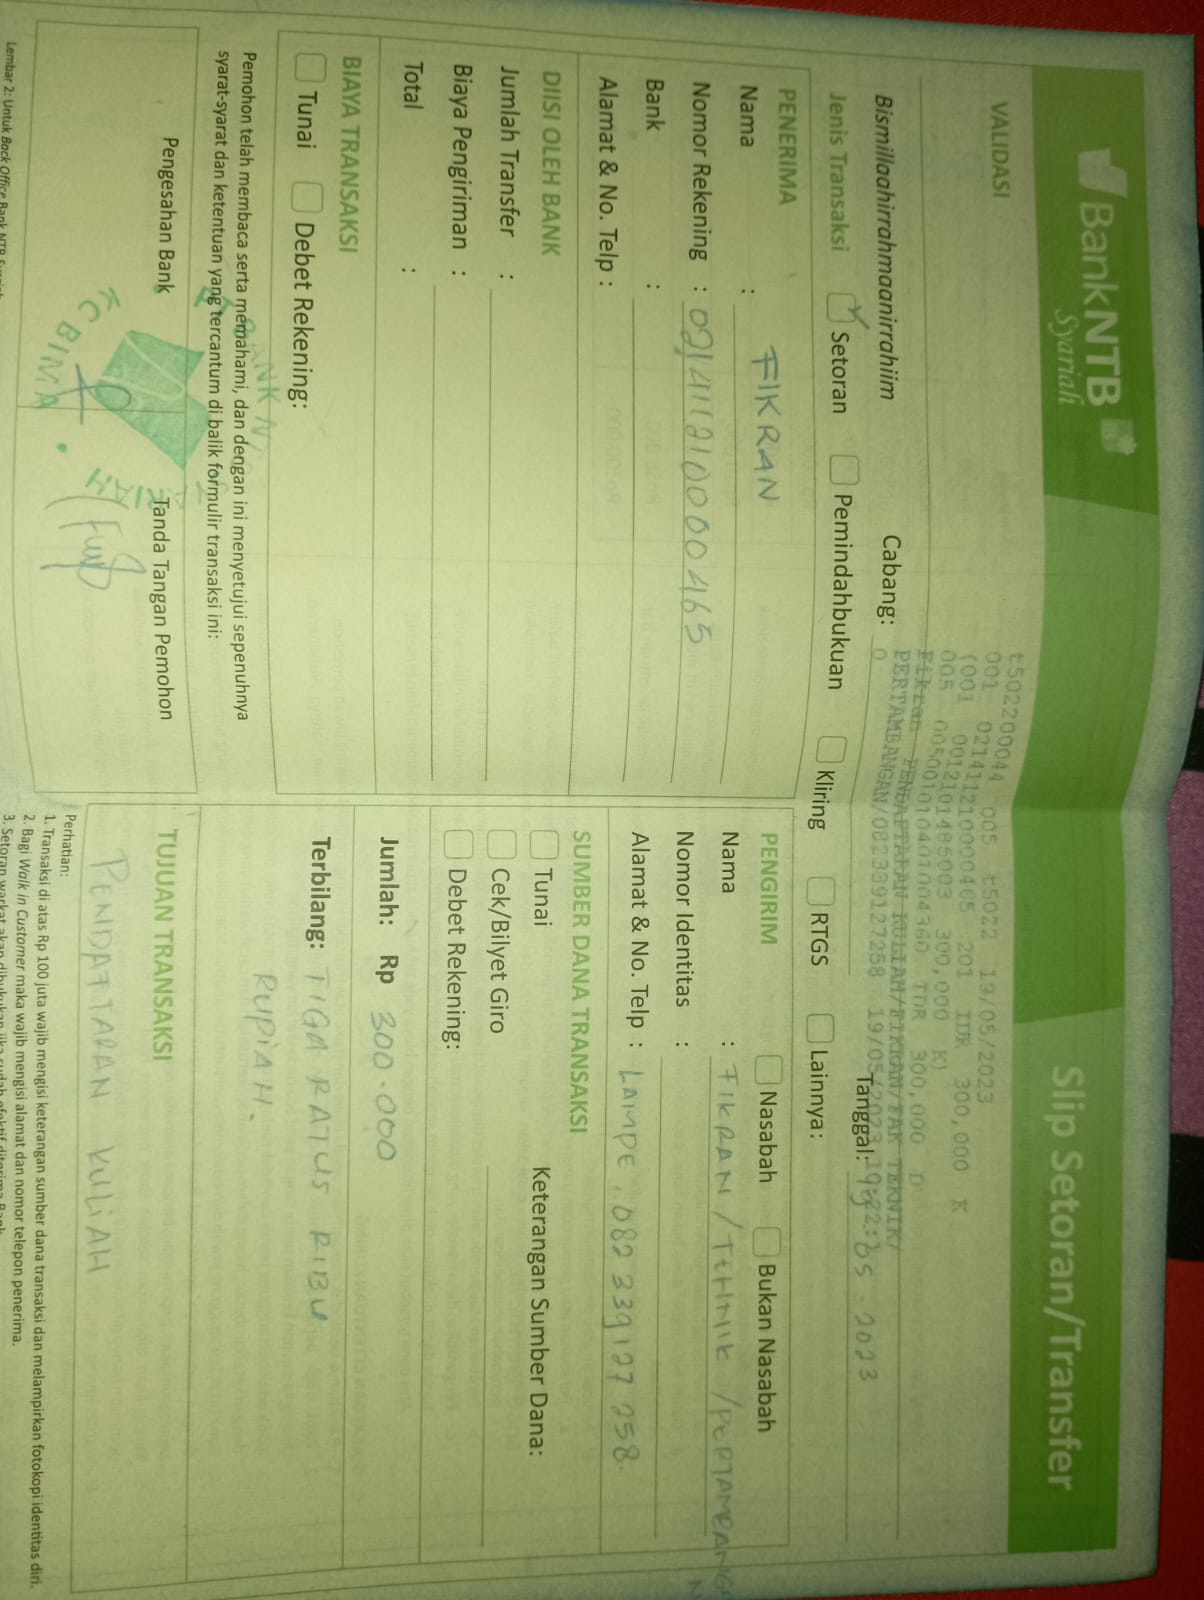 BankNTB
Syariah
Slip Setoran/Transfer
VALIDASI
t502200044 005 t5022 19/05/2023
001 0214112100000465 201 IDR 300,000 K
(001 0012101485003 300,000 K)
005 005001010401004360 IDR 300,000 D
Fikran PENDAFTARAN KULIAH/FIKRAN/FAK TEKNIK/
PERTAMBANGAN/082339127258 19/05/2023
Bismillaahirrahmaanirrahiim
Cabang:
Tanggal: 19-05-2023
Jenis Transaksi Setoran Pemindahbukuan Kliring RTGS Lainnya:
PENERIMA
Nama : FIKRAN
Nomor Rekening : 0214112100000465
Bank :
Alamat & No. Telp :
PENGIRIM Nasabah Bukan Nasabah
Nama : FIKRAN / TEHNIK / PERTAMBANGAN
Nomor Identitas :
Alamat & No. Telp : LAMPE. 082 339 127 258.
DIISI OLEH BANK
Jumlah Transfer :
Biaya Pengiriman :
Total :
SUMBER DANA TRANSAKSI
Tunai Keterangan Sumber Dana:
Cek/Bilyet Giro
Debet Rekening:
BIAYA TRANSAKSI
Tunai Debet Rekening:
Jumlah: Rp 300.000
Terbilang: TIGA RATUS RIBU
RUPIAH.
Pemohon telah membaca serta memahami, dan dengan ini menyetujui sepenuhnya
syarat-syarat dan ketentuan yang tercantum di balik formulir transaksi ini:
Pengesahan Bank
Tanda Tangan Pemohon
KC BIMA
TUJUAN TRANSAKSI
PENDAFTARAN KULIAH
Lembar 2: Untuk Back Office Bank NTB Syariah
Perhatian:
1. Transaksi di atas Rp 100 juta wajib mengisi keterangan sumber dana transaksi dan melampirkan fotokopi identitas diri.
2. Bagi Walk in Customer maka wajib mengisi alamat dan nomor telepon penerima.
3. Setoran warkat akan dibukukan jika sudah efektif diterima Bank